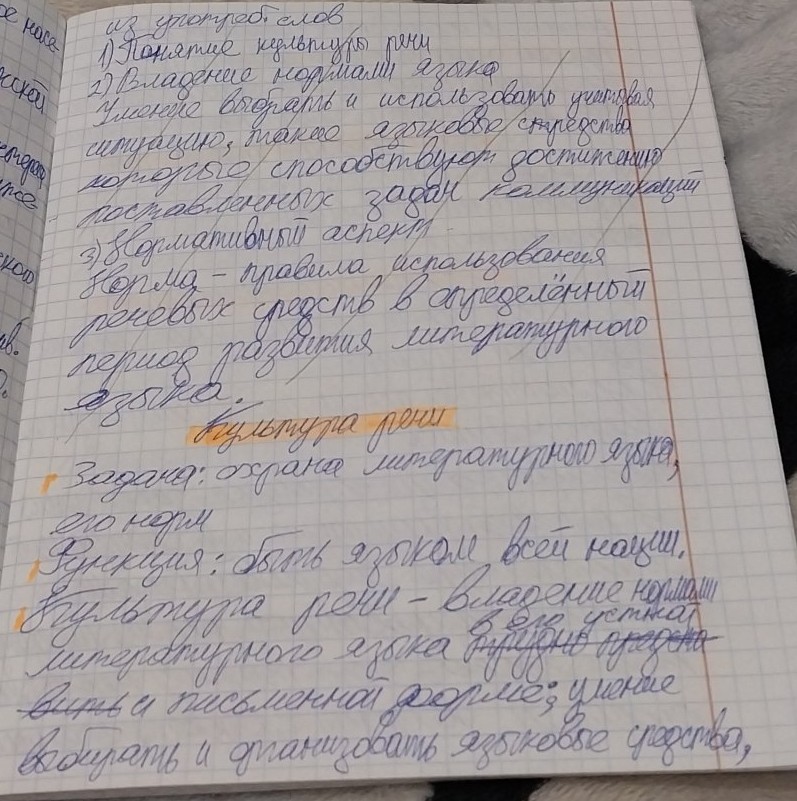 ое насе
сской
ского
из употреб. слов
1) Понятие культуры речи
2) Владение нормами языка
Умение выбрать и использовать учитывая
ситуацию, такие языковые средства
которые способствуют достижению
поставленных задач коммуникаций
3) Нормативный аспект
Норма – правила использования
речевых средств в определённый
период развития литературного
языка.
Культура речи
Задача: охрана литературного языка,
его норм
Функция: быть языком всей нации.
Культура речи – владение нормами
в его устной
литературного языка трудно предста
вить и письменной форме; умение
выбирать и организовать языковые средства,